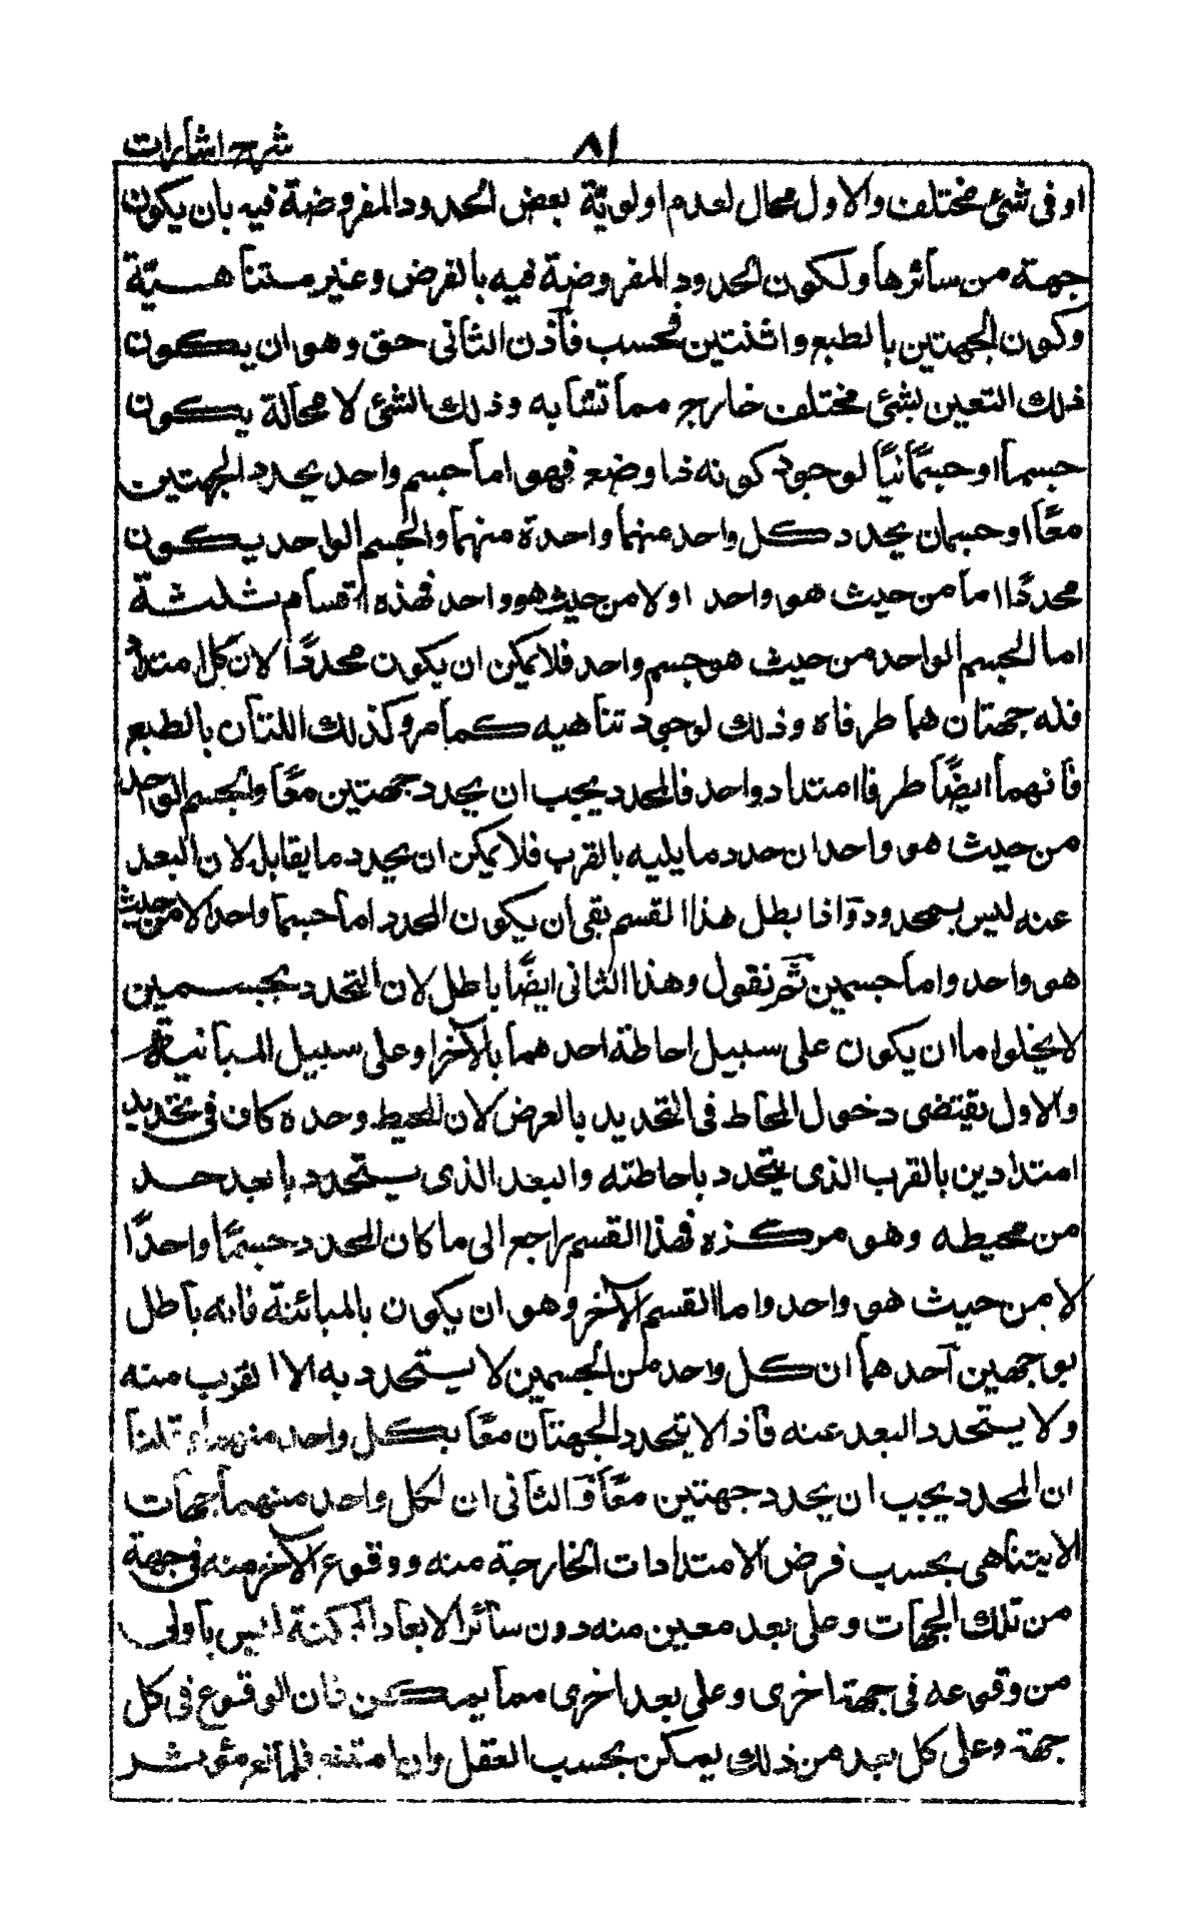 شرح اشارات
٨١
او فی شئ مختلف والاول محال لعدم اولویّة بعض الحدود المفروضة فیه بان یکون
جهة من سائرها ولکون الحدود المفروضة فیه بالفرض وغیر متناهیّة
وکون الجهتین بالطبع واثنتین فحسب فاذن الثانی حق وهو ان یکون
ذلك التعین بشئ مختلف خارج مما تشابه وذلك الشئ لا محالة یکون
جسما او جسمًانیًا لوجوب کونه ذا وضع فهو اما جسم واحد یحدد الجهتین
معًا او جسمان یحدد کل واحد منهما واحدة منهما والجسم الواحد یکون
محددًا اما من حیث هو واحد او لا من حیث هو واحد فهذه اقسام ثلثة
اما الجسم الواحد من حیث هو جسم واحد فلا یمکن ان یکون محددًا لان کل امتداد
فله جهتان هما طرفاه وذلك لوجوب تناهیه کما مر وکذلك اللتان بالطبع
فانهما ایضًا طرفا امتداد واحد فالمحدد یجب ان یحدد جهتین معًا والجسم الواحد
من حیث هو واحد ان حدد ما یلیه بالقرب فلا یمکن ان یحدد ما یقابله لان البعد
عنه لیس بمحدود واذا بطل هذا القسم بقی ان یکون المحدد اما جسما واحدا لا من حیث
هو واحد واما جسمین ثم نقول وهذا الثانی ایضًا باطل لان التحدد بجسمین
لا یخلوا ما ان یکون علی سبیل احاطة احدهما بالآخر او علی سبیل المباینة
والاول یقتضی دخول المحاط فی التحدید بالعرض لان المحیط وحده کاف فی تحدید
امتدادین بالقرب الذی یتحدد باحاطته والبعد الذی یتحدد بابعد حد
من محیطه وهو مرکزه فهذا القسم راجع الی ما کان المحدد جسمًا واحدًا
لا من حیث هو واحد واما القسم الآخر وهو ان یکون بالمبائنة فانه باطل
بوجهین احدهما ان کل واحد من الجسمین لا یتحدد به الا القرب منه
ولا یتحدد البعد عنه فاذ الا یتحدد الجهتان معًا بکل واحد منهما وقلنا
ان المحدد یجب ان یحدد جهتین معًا والثانی ان لکل واحد منهما جهات
لا یتناهی بحسب فرض الامتدادات الخارجة منه ووقوع الآخر منه فی جهة
من تلك الجهات وعلی بعد معین منه دون سائر الابعاد الممکنة لیس باولی
من وقوعه فی جهة اخری وعلی بعد اخری مما یمکن فان الوقوع فی کل
جهة وعلی کل بعد من ذلك یمکن بحسب العقل وان امتنع فلمانع مؤثر